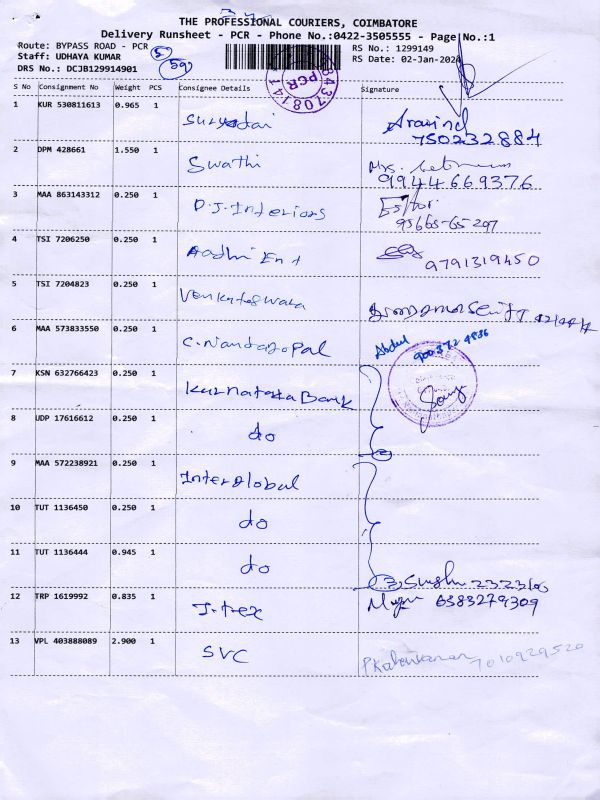 THE PROFESSIONAL COURIERS, COIMBATORE
Delivery Runsheet - PCR - Phone No.:0422-3505555 - Page No.:1
Route: BYPASS ROAD - PCR
Staff: UDHAYA KUMAR
DRS No.: DCJB129914901
RS No.: 1299149
RS Date: 02-Jan-2024
5
59
PCR
S No Consignment No Weight PCS Consignee Details Signature
1 KUR 530811613 0.965 1 Suryadai Aravind
7502332884
2 DPM 428661 1.550 1 Swathi Mrs.
9944669376
3 MAA 863143312 0.250 1 D.J.Interiors
95665-65297
4 TSI 7206250 0.250 1 Aadhi Ent 9791319450
5 TSI 7204823 0.250 1 Venkateswara
6 MAA 573833550 0.250 1 C.Nandagopal Abdul 9003724836
7 KSN 632766423 0.250 1 Karnataka Bank
8 UDP 17616612 0.250 1 do
9 MAA 572238921 0.250 1 Interglobal
10 TUT 1136450 0.250 1 do
11 TUT 1136444 0.945 1 do
12 TRP 1619992 0.835 1 J.tex 6383279309
13 VPL 403888089 2.900 1 SVC 7010929520